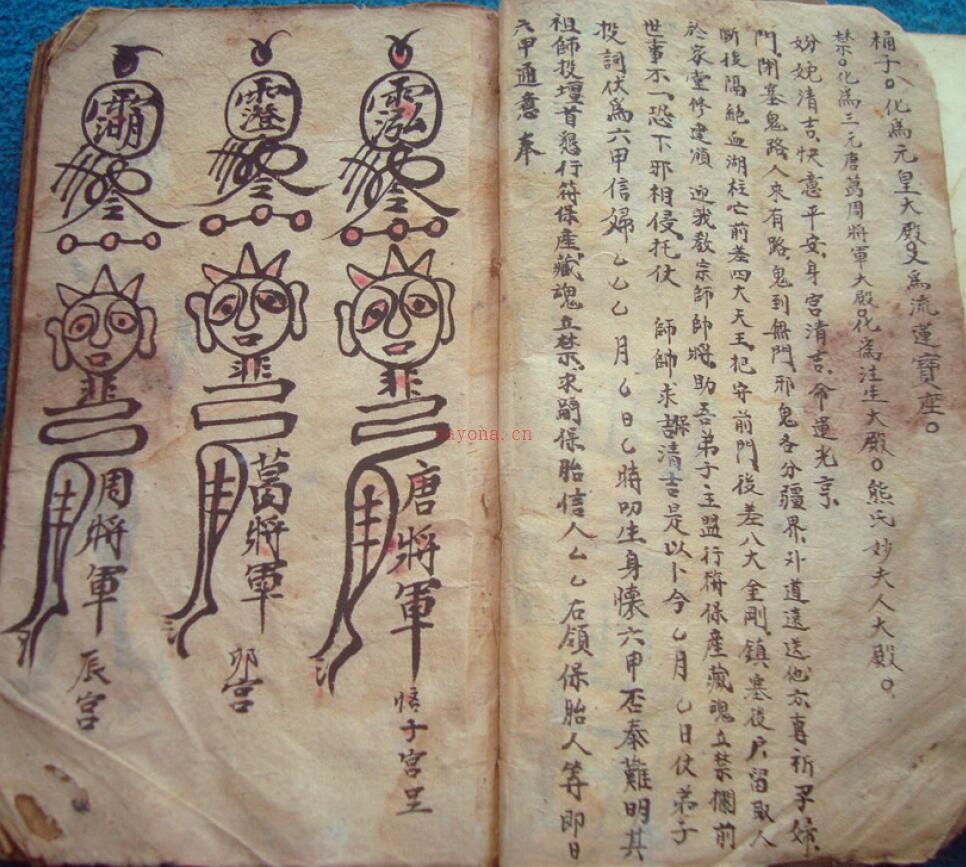 桶子。化為元皇大殿。又為流蓮寶座。
禁。化為三元唐葛周將軍大殿。化為注生大殿。熊氏妙夫人大殿。
妢娩清吉，快意平安，身宮清吉，命運光亨
門，閉塞鬼路，人來有路，鬼到無門，邪鬼各分疆界，外道遠送他方，專祈孕婦，
斷後隔絕血湖柱亡，前差四大天王，把守前門，後差八大金剛，鎮塞後戶，留取人
於家堂修建 迎我教宗師帥將，助吾弟子主盟行符保產藏魂立禁，攔前
世事不一，恐下邪相侵，托仗 師帥求 保清吉，是以卜今乙月 乙日仗弟子
投詞伏為六甲信婦乙乙乙月乙日乙時叩生，身懷六甲，否泰難明，其
祖師投壇首懇行符保產，藏魂立禁，求嗣保胎信人厶乙右領保胎人等即日
六甲通意 奉
唐將軍
子宮
葛將軍
卯宮
周將軍
辰宮
nayona.cn